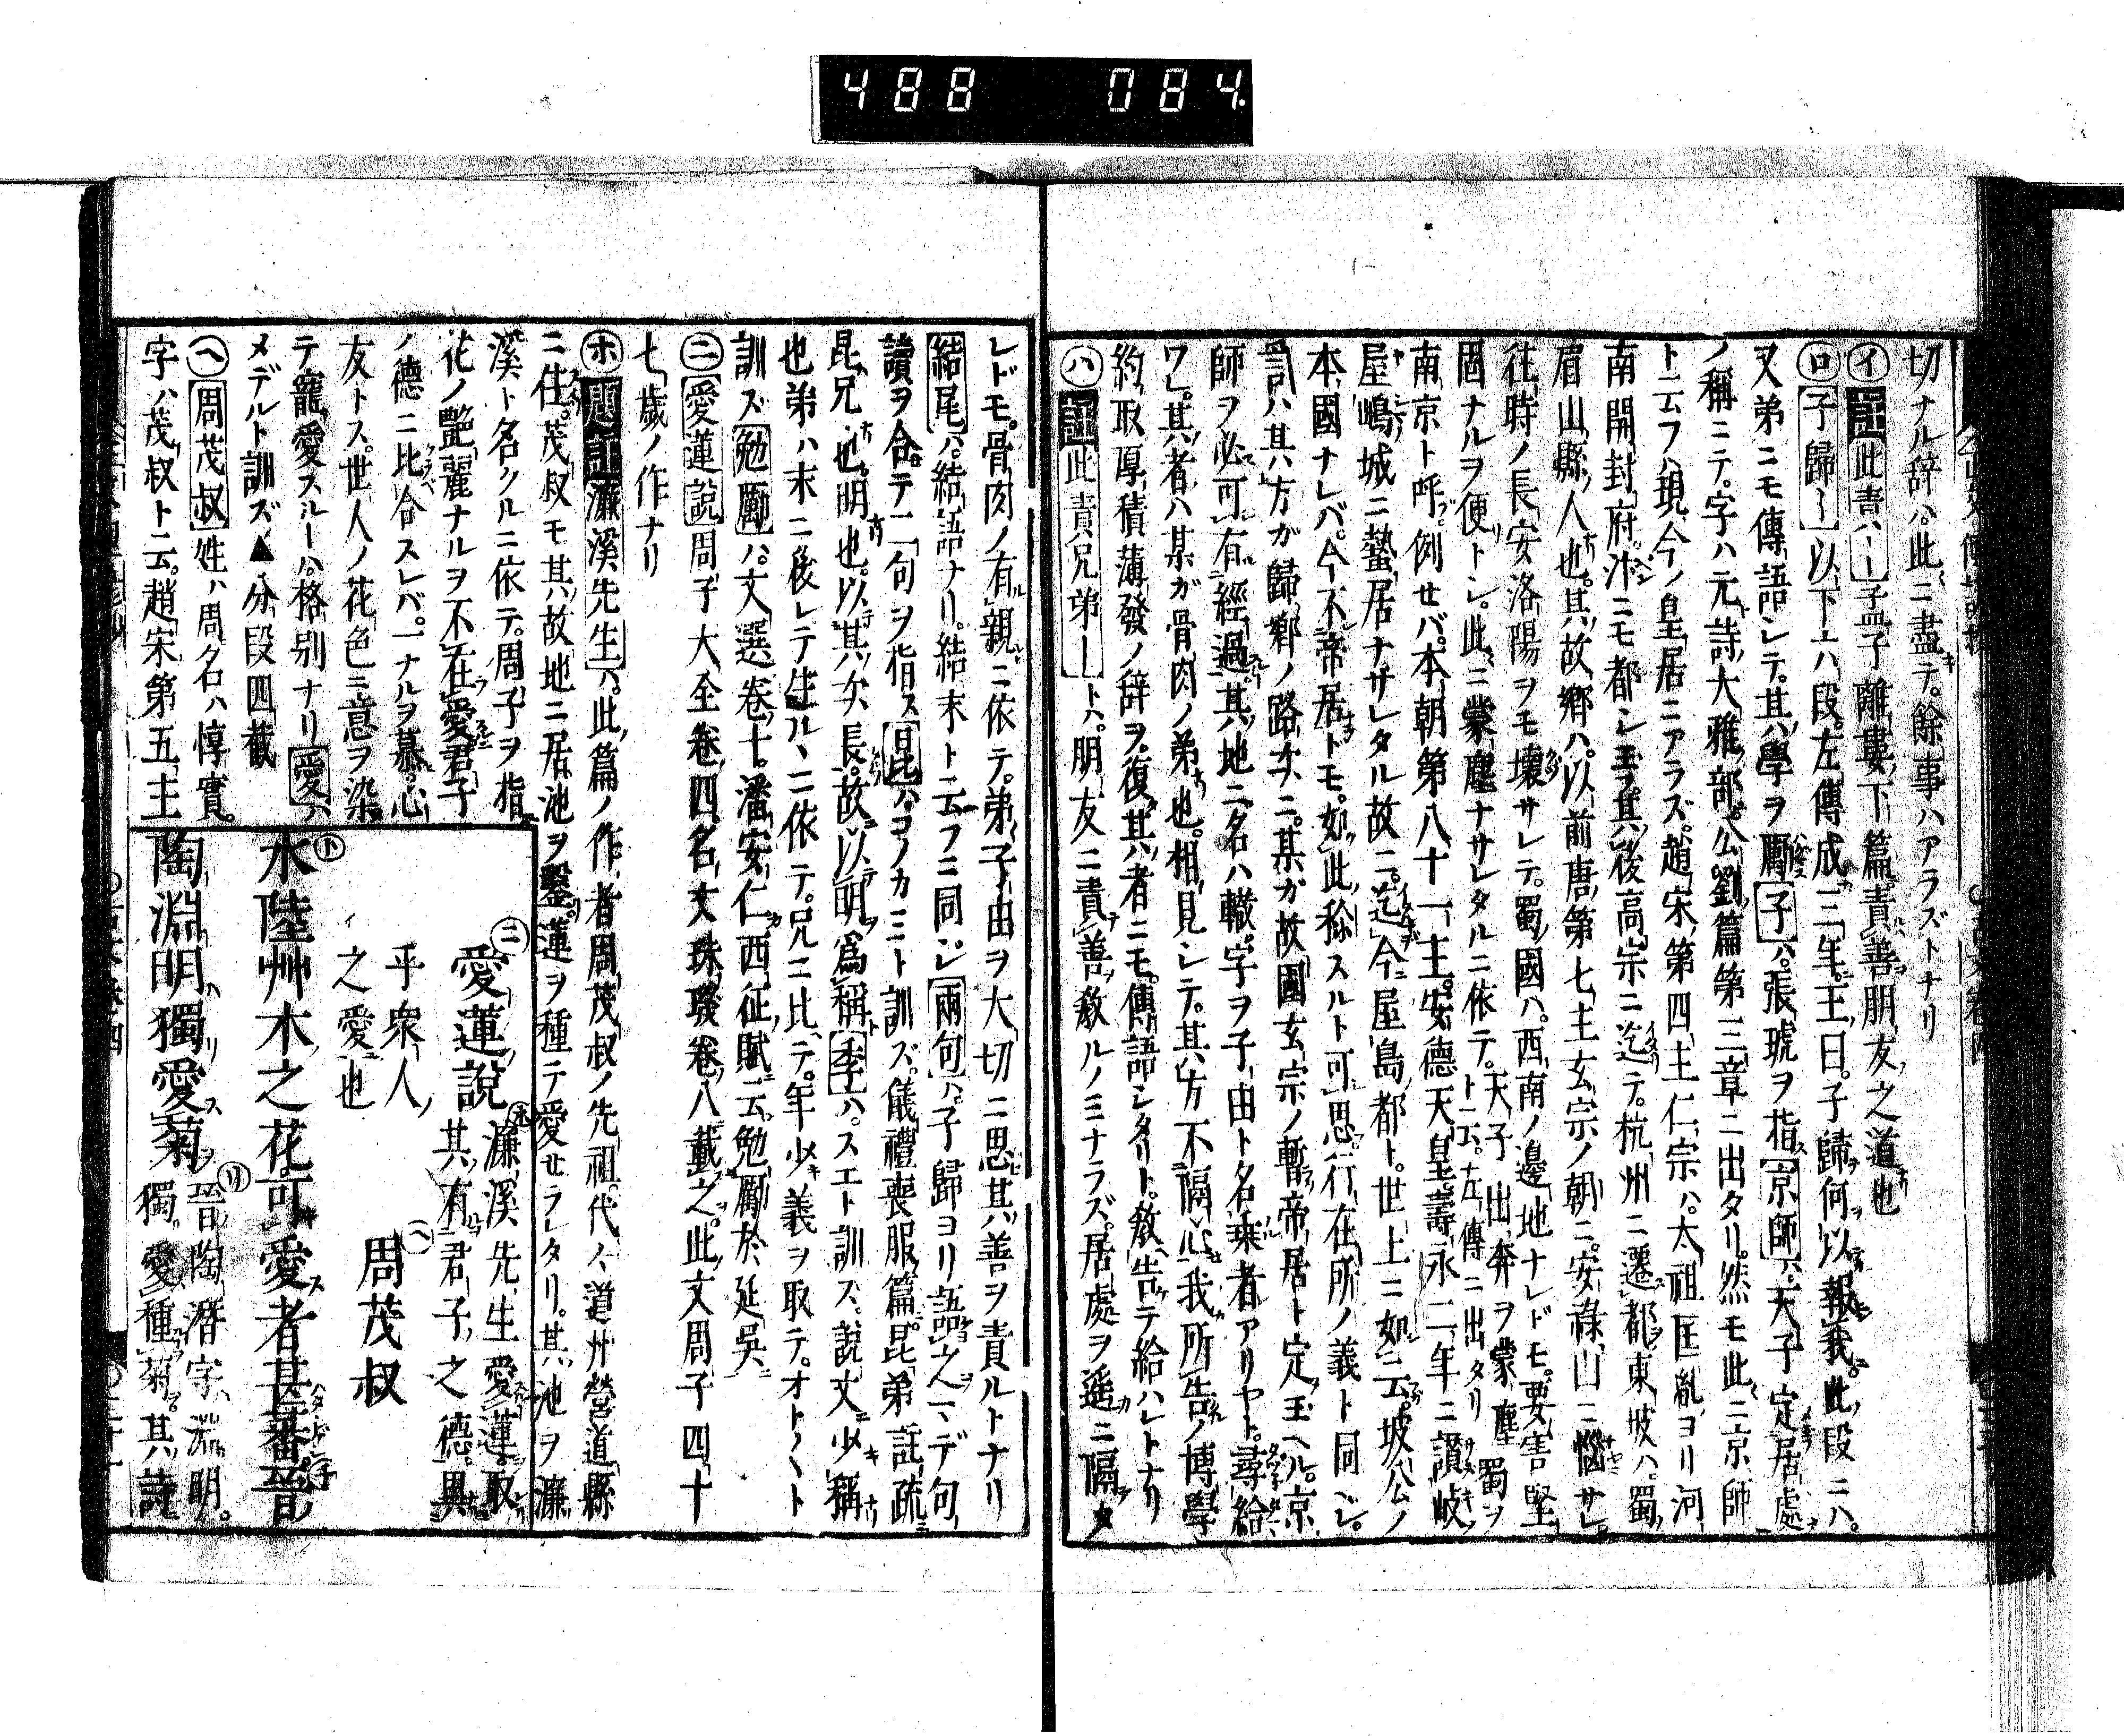 488 084
切ナル辞ハ此ニ盡テ。餘事ハアラズトナリ
㋑註此責ハ｜孟子離婁下篇。責善朋友之道也
㋺子歸｜以下六段。左傳成三年。王曰。子歸何以報我。此段ニハ。
又弟ニモ傳語シテ。其學ヲ勵子ハ。張琥ヲ指京師ハ。天子定居處
ノ稱ニテ。字ハ元詩大雅部。公劉篇第三章ニ出タリ。然モ此ニ京師
ト云フハ現今ノ皇居ニアラズ。趙宋第四主仁宗ハ。太祖匡胤ヨリ河
南開封府汴ニモ都シ玉フ。其後高宗ニ迄テ。杭州ニ遷都東坡ハ。蜀
眉山縣人也。其故郷ハ。以前唐第七主玄宗ノ朝ニ。安禄山ニ惱サレ。
往時ノ長安洛陽ヲモ壊サレテ。蜀國ハ。西南ノ邊地ナレドモ。要害堅
固ナルヲ便トシ。此ニ蒙塵ナサレタルニ依テ。天子出奔ヲ蒙塵ト云。左傳ニ出タリ蜀ヲ
南京ト呼。例セバ。本朝第八十一主。安德天皇壽永二年ニ讃岐
屋嶋城ニ蟄居ナサレタル故ニ。迄今屋島都ト。世上ニ如云。坡公ノ
本國ナレバ。今不帝居トモ。如此稱スルト可思。行在所ノ義ト同シ。
訓ハ其方ガ歸郷ノ路次ニ。某ガ故國玄宗ノ暫帝居ト定玉ヘル。京
師ヲ必可有經過。其地ニ名ハ轍。字ヲ子由ト名乗者アリヤト。尋給
ワレ。其者ハ某ガ骨肉ノ弟也。相見シテ。其方不隔心。我所告ノ博學
約取厚積薄發ノ辞ヲ。復其者ニモ。傳語シタリト。敎告テ給ハレトナリ
㋩註此責兄弟｜トハ。朋友ニ責善敎ルノミナラズ。居處ヲ遥ニ隔タ
レドモ。骨肉ノ有親ニ依テ。弟子由ヲ大切ニ思。其善ヲ責ルトナリ
結尾ハ。結語ナリ。結末ト云フニ同シ兩句ハ。子歸ヨリ語之マデ句
讀ヲ合テ二句ヲ指ス昆ハ。コノカミト訓ズ。儀禮喪服篇。昆弟註疏
昆兄也。明也。以其次長。故以明爲稱季ハ。スエト訓ス。說文少稱
也弟ハ末ニ後レテ生ルヽニ依テ。兄ニ比テ。年少義ヲ取テ。オトヽト
訓ズ勉勵ハ。文選卷十。潘安仁西征賦云。勉勵於延吳
㊁愛蓮說周子大全卷四。名文珠璣卷八載之。此文周子四十
七歳ノ作ナリ
㋭題註濂溪先生ハ。此篇ノ作者周茂叔ノ先祖。代々道州營道縣
ニ住。茂叔モ其故地ニ居。池ヲ鑿。蓮ヲ種ニテ愛セラレタリ。其池ヲ濂
溪ト名クルニ依テ。周子ヲ指
花ノ艷麗ナルヲ不在愛君子
ノ德ニ比合スレバ。一ナルヲ慕。心
友トス。世人ノ花色ニ意ヲ染
テ寵愛スルーハ格别ナリ愛ハ
メデルト訓ズ▲分段四截
㋬周茂叔姓ハ周名ハ惇實。
字ハ茂叔ト云。趙宋第五主
㊁愛蓮說㋭濂溪先生愛蓮。取
其有君子之德。異
乎衆人
之愛也
㋬周茂叔
㋣水陸艸木之花。可愛者甚蕃。晉
陶淵明獨愛菊㋷晉陶潛字淵明。
獨愛種菊。其詩